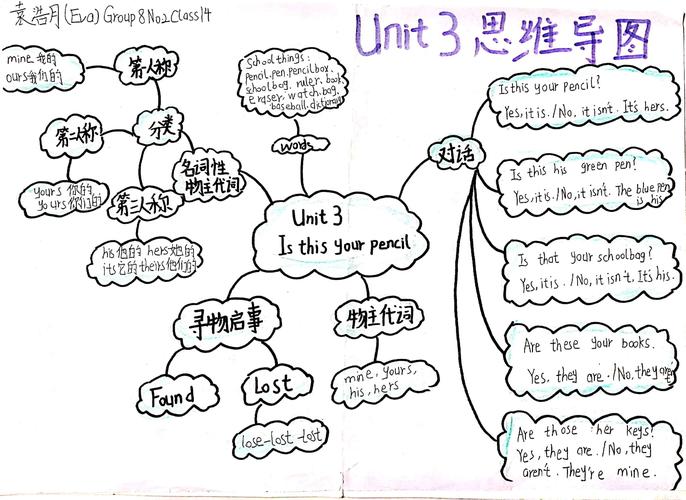 袁浩月(Eva) Group 8 No2 Class14
Unit 3 思维导图
mine 我的
ours 我们的
第一人称
分类
第二人称
yours 你的
yours 你们的
第三人称
his 他的 hers 她的
its 它的 theirs 他们的
名词性
物主代词
School things:
pencil, pen, pencilbox,
schoolbag, ruler, book,
eraser, watch, bag,
baseball, dictionary
words
Unit 3
Is this your pencil
对话
Is this your pencil?
Yes, it is. /No, it isn't. It's hers.
Is this his green pen?
Yes, it is. /No, it isn't. The blue pen
is his
Is that your schoolbag?
Yes, it is. /No, it isn't. It's his.
Are these your books.
Yes, they are. /No, they
Are those her keys?
Yes, they are. /No, they
aren't. They're mine.
寻物启事
Found
Lost
lose-lost-lost
物主代词
mine, yours,
his, hers